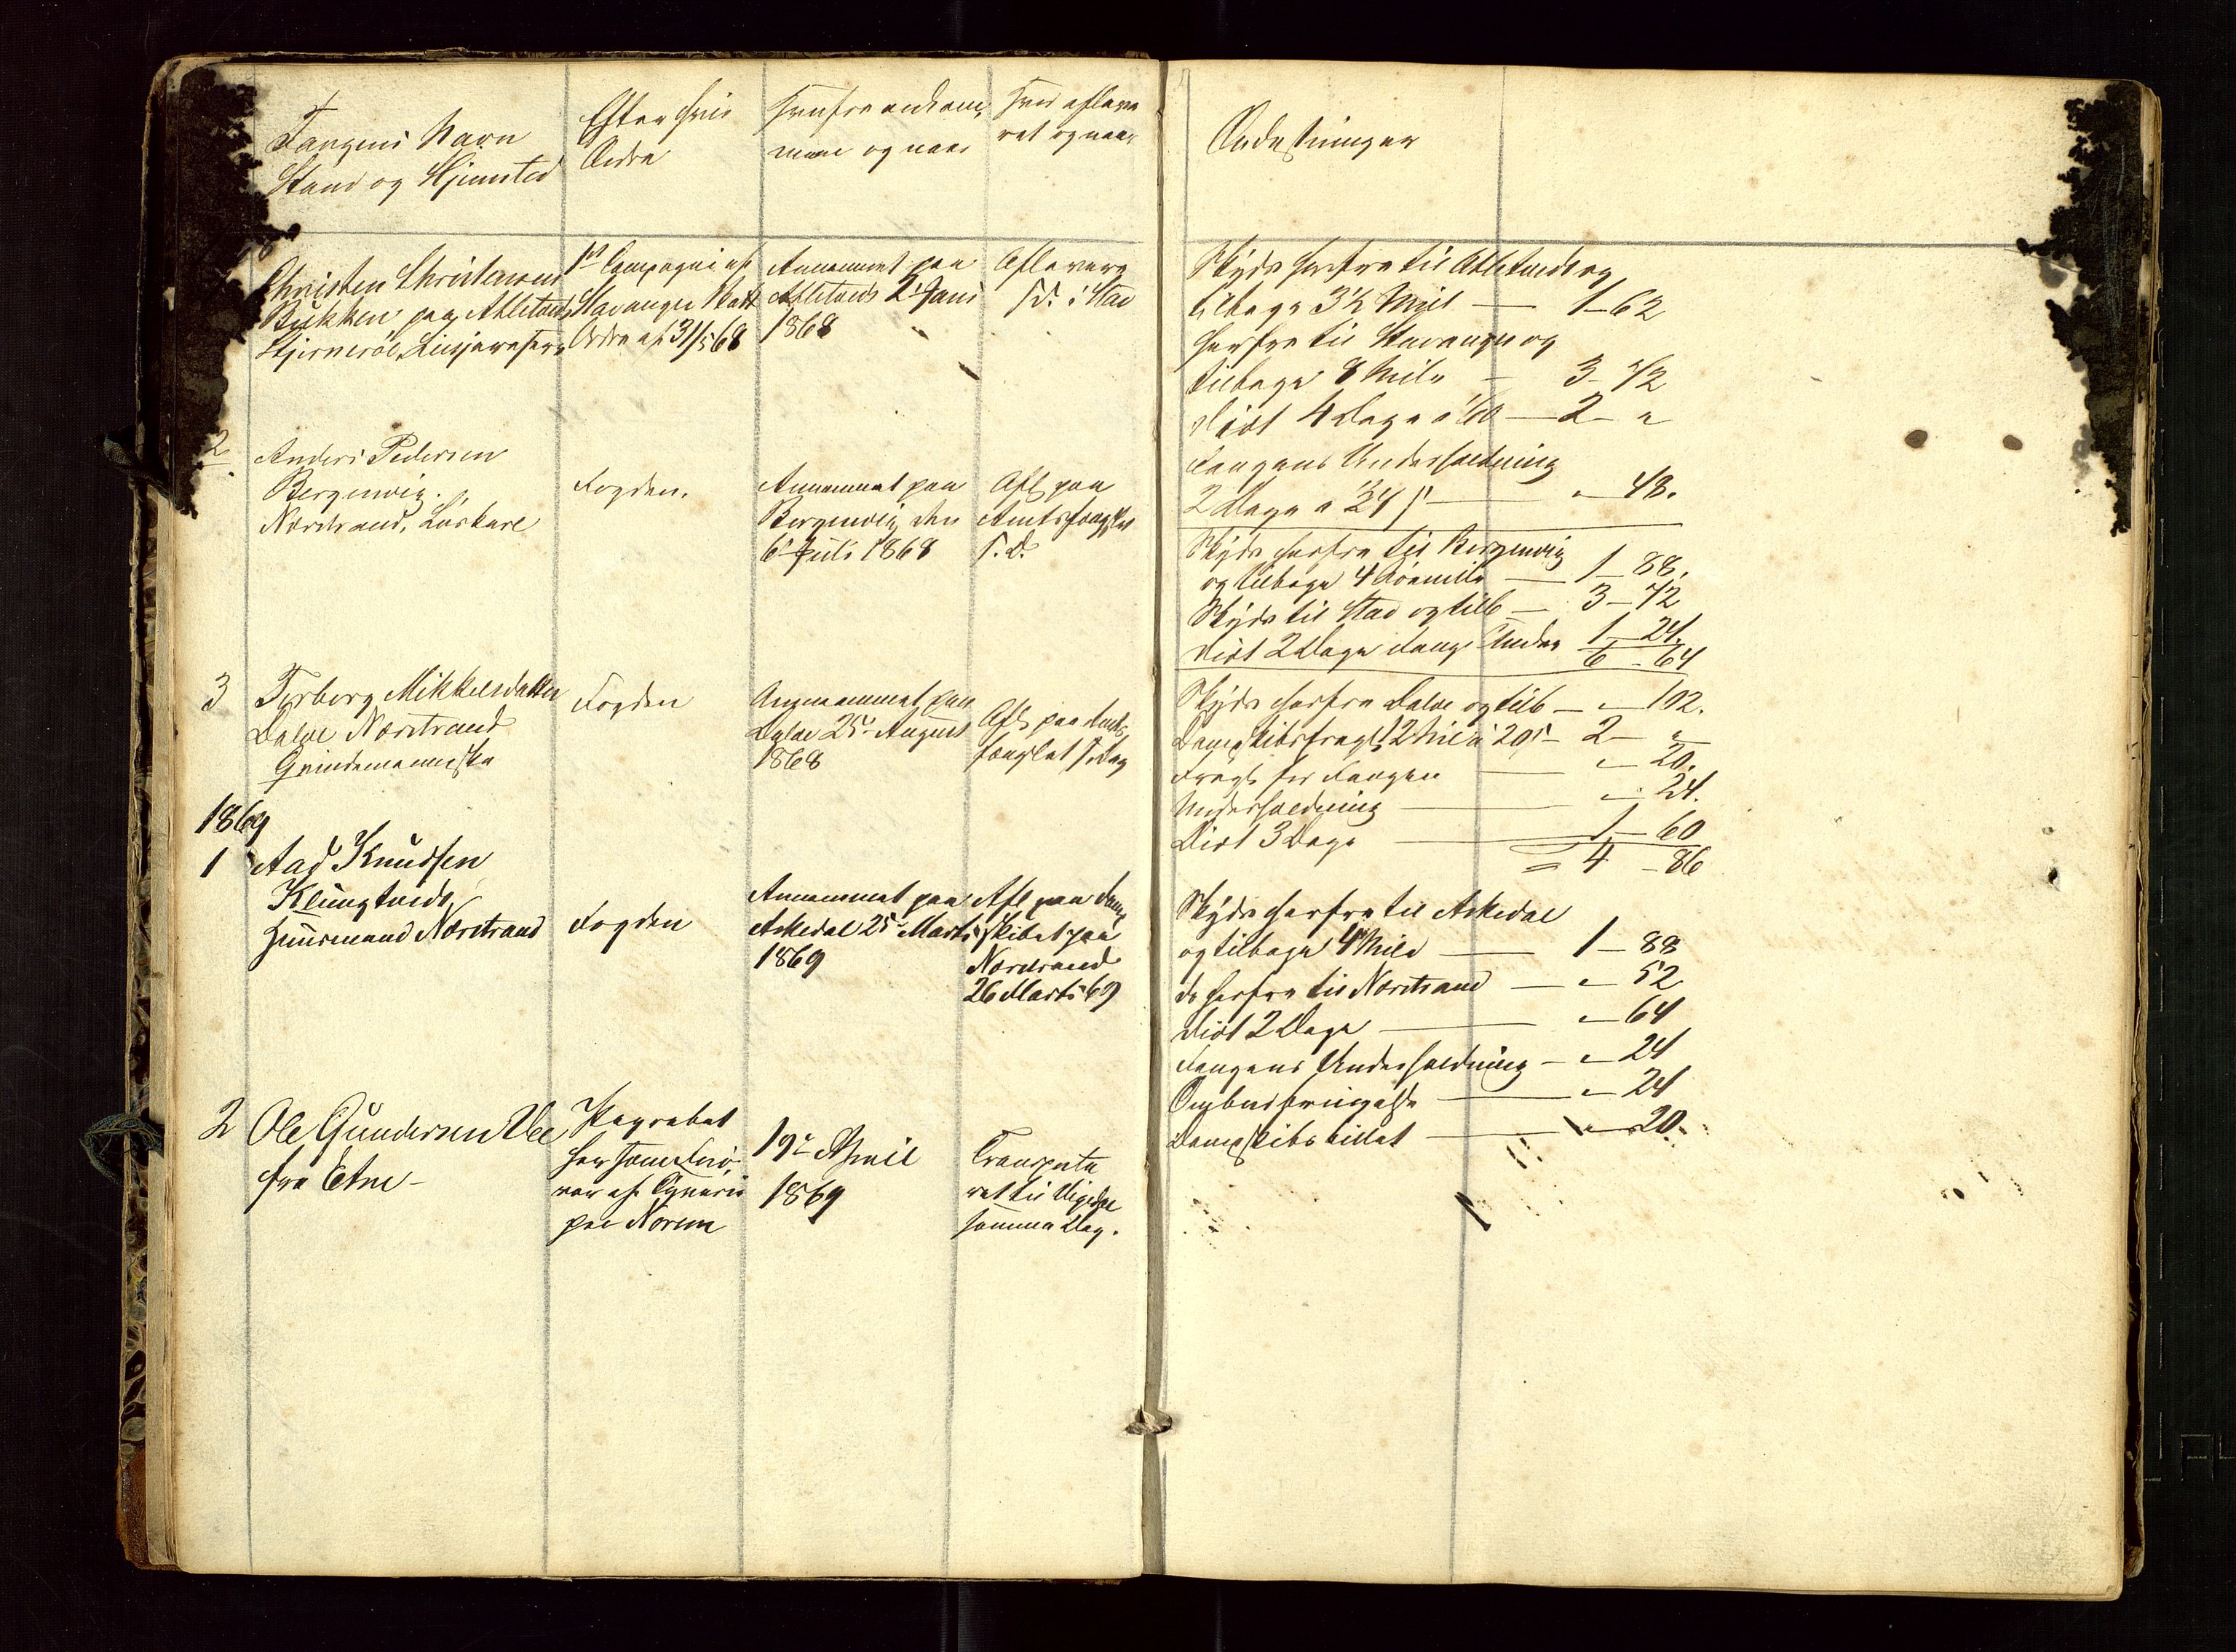 Fangens Navn
Stand og Hjemsted
Efter hvis
Ordre
Hvorfra ankom-
men og naar
Hvor afleve
ret og naar
Anledninger
Christen Christensen
Bukken paa Atletveit
Stjernerøe, Losjernsfører
1st Compagni af
Stavanger Batt
Ordre af 31/5 68
Annammet paa
Atletveit 2 Juni
1868
Aflevere
S. D. i Stav
Skyds herfra til Atletveit og
tilbage 3½ Miil — 1-62
herfra til Stavanger og
tilbage 8 Mile — 3-72
Diæt 4 Dage a 60 — 2- "
Fangens Underholdning
2 Dage a 24 s — " - 48.
2
Anders Pedersen
Bergevig.
Nærstrand, Løskarl
Fogden.
Annammet paa
Bergevig den
6 Juli 1868
Afl paa
Amtsfængslet
S. D.
Skyds herfra til Bergevig
og tilbage 4 Søemile — 1-88.
Skyds til Stav og tilb — 3-72
Diæt 2 Dage Fang. Under 1-24.
6-64
3 Torborg Mikkelsdatter
Dalve Nærstrand
Grindemanneske
Fogden
Annammet paa
Dalve 25 August
1868
Afl paa Amts
fængslet s. Dag
Skyds herfra Dalve og tilb — " - 102.
Dampskibsfragt 12 Mil a 20 s — 2- "
Fragt for Fangen — " 20.
Underholdning — " - 24.
Diæt 3 Dage — 1-60
= 4-86
1869
1 Aad Knudsen
Klungtveit
Huusmand Nærstrand
Fogden
Annammet paa
Askedal 25 Marts
1869
Afl paa Damp
skibet paa
Nærstrand
26 Marts 69
Skyds herfra til Askedal
og tilbage 4 Mile — 1-88
do herfra til Nærstrand — " - 52
Diæt 2 Dage — " - 64
Fangens Underholdning — " - 24
Ombudbringelse — " - 24
Dampskibsbillet — " - 20.
2 Ole Gundersen Vee
fra Etne -
Begræbet
her
af
paa Norem
19 April
1869
Transporte
ret til Vigedal
samme Dag.